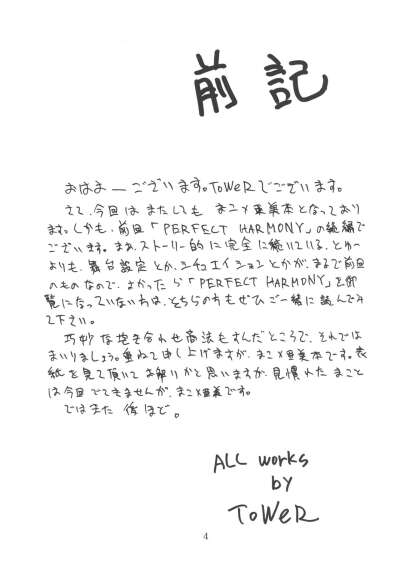 前記
おはよーございます。ToWeRでございます。
さて、今回はまたしても まこ×亜美本となっており
ます。しかも、前回「PERFECT HARMONY」の続編で
ございます。まぁ、ストーリー的に完全に続いている、とゆー
よりも、舞台設定とか、シチュエイションとかが、まるで前回
のものなので、よかったら「PERFECT HARMONY」を御
覧になっていない方は、そちらの方もぜひご一緒に読んでみ
て下さい。
巧妙な抱き合わせ商法もすんだところで、それでは
まいりましょう。重ねて申し上げますが、まこ×亜美本です。表
紙を見て頂いてお解りかと思いますが、見慣れたまことと
は今回でてきませんが、まこ×亜美です。
ではまた 後ほど。
ALL works
by
ToWeR
4